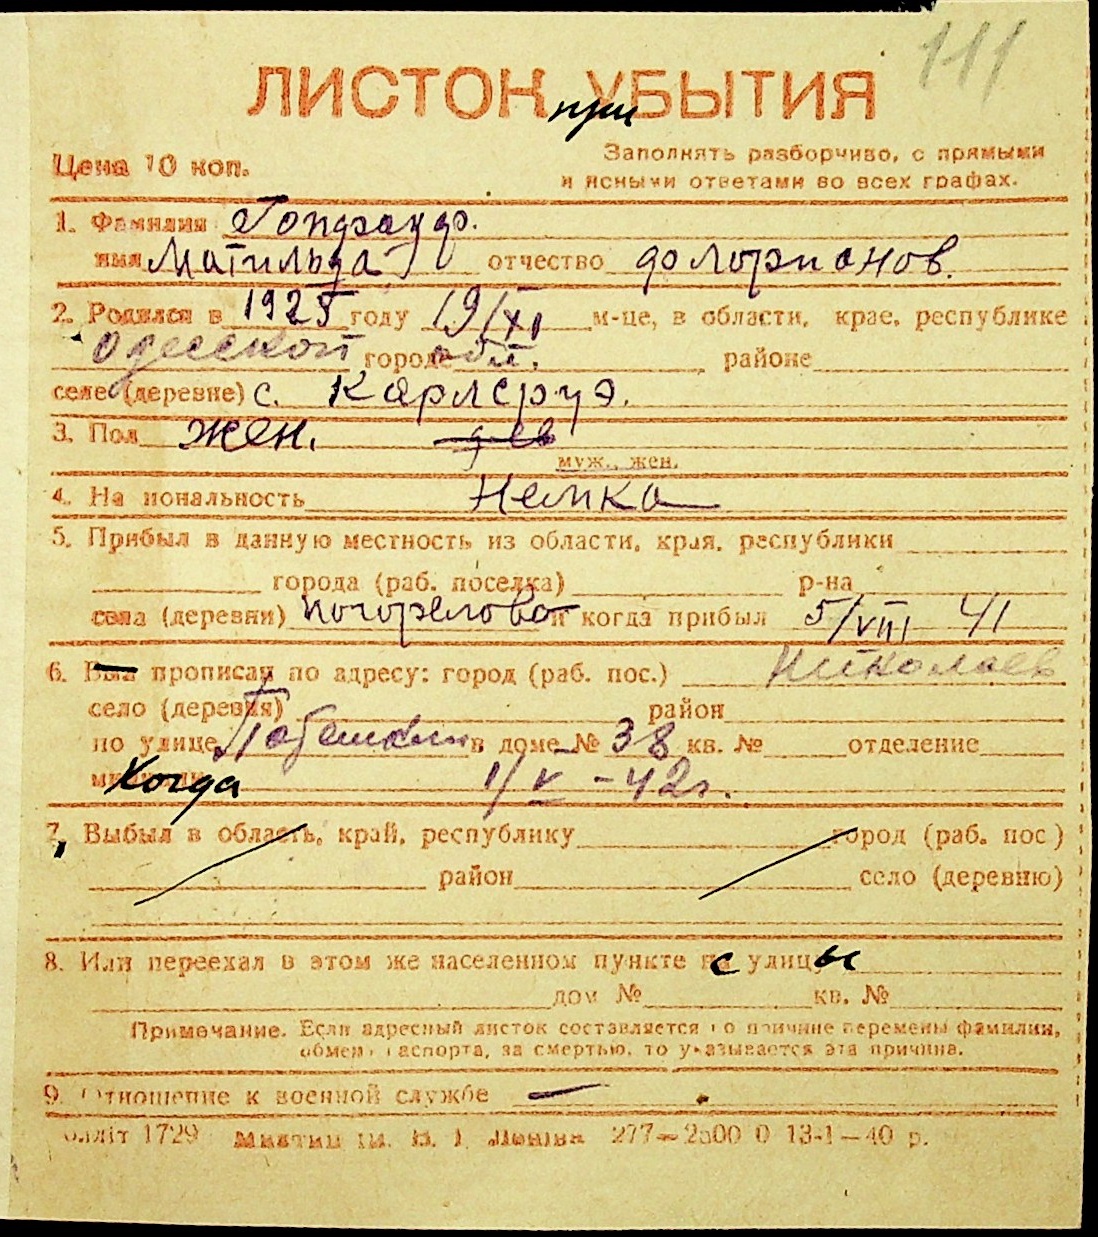 111
ЛИСТОК УБЫТИЯ
при
Цена 10 коп.
Заполнять разборчиво, с прямыми
и ясными ответами во всех графах.
1. Фамилия
имя Матильда отчество Флорианов.
2. Родился в 1925 году 19/XI м-це, в области, крае, республике
Одесской городе обл. районе
селе (деревне) с. Карлсруэ.
3. Пол жен.
муж., жен.
4. Национальность Немка
5. Прибыл в данную местность из области, края, республики
города (раб. поселка) р-на
села (деревни) Погорелово и когда прибыл 5/VIII 41
6. Был прописан по адресу: город (раб. пос.) Николаев
село (деревня) район
по улице в доме № 38 кв. № отделение
Когда 1/V - 42г.
7. Выбыл в область, край, республику город (раб. пос)
район село (деревню)
8. Или переехал в этом же населенном пункте с улицы
дом № кв. №
Примечание. Если адресный листок составляется по причине перемены фамилии,
обмена паспорта, за смертью, то указывается эта причина.
9. Отношение к военной службе —
1729 277—2500 0 13-1—40 р.